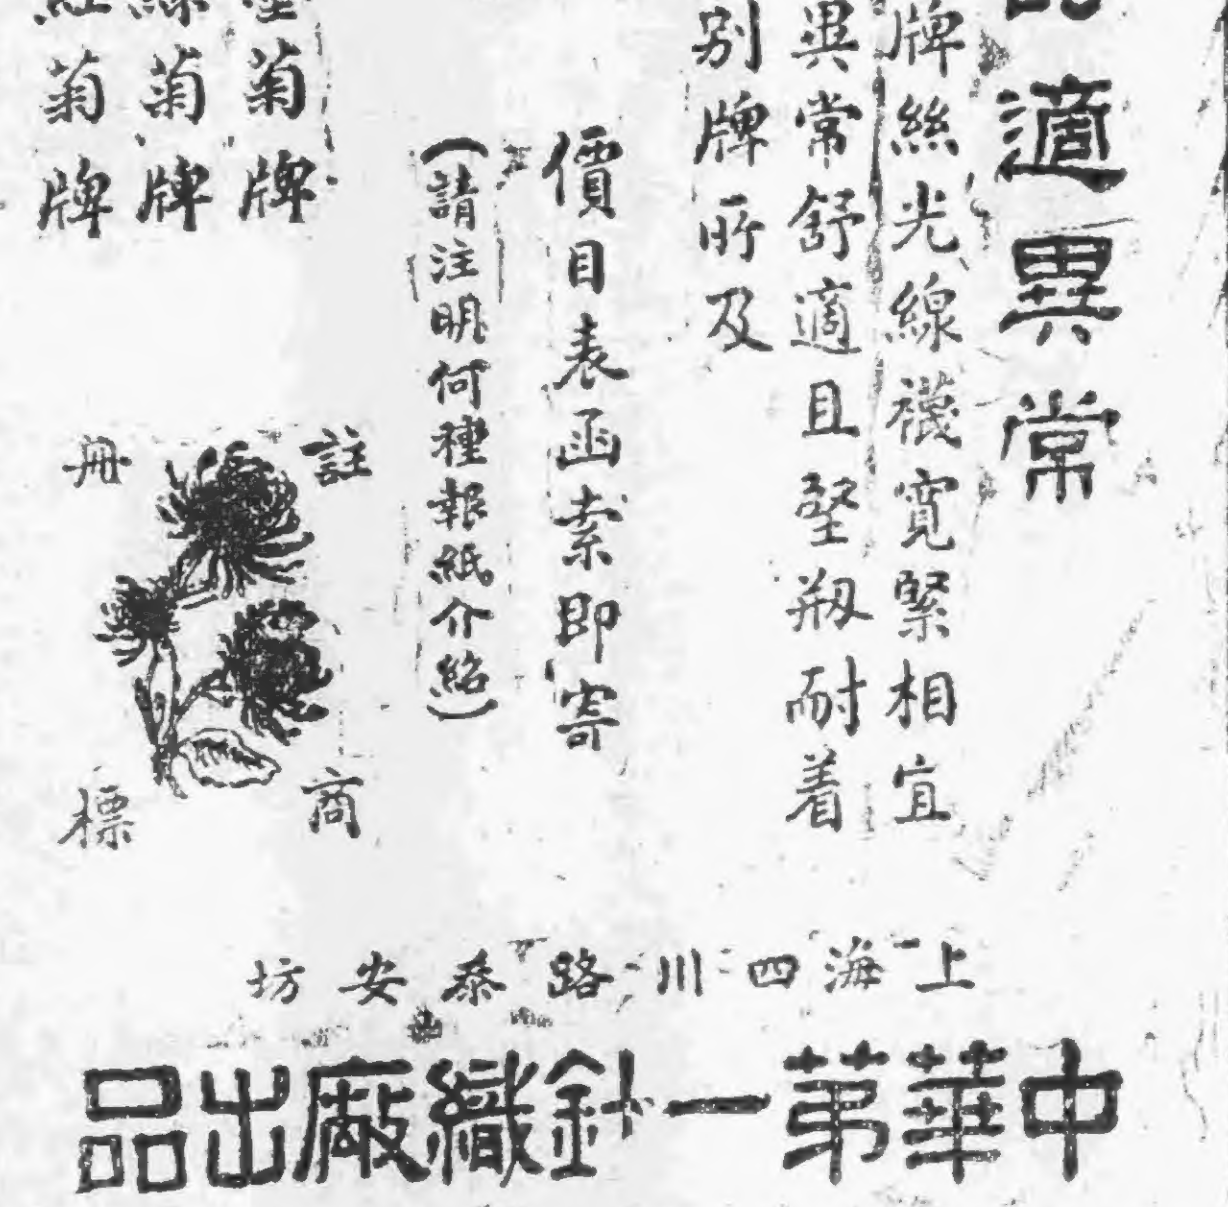 適異常
牌絲光線襪寬緊相宜
異常舒適且堅靱耐着
别牌所及
價目表函索即寄
(請注明何種報紙介紹)
菊牌
綠菊牌
紅菊牌
註冊
商標
上海四川路泰安坊
中華第一針織廠出品